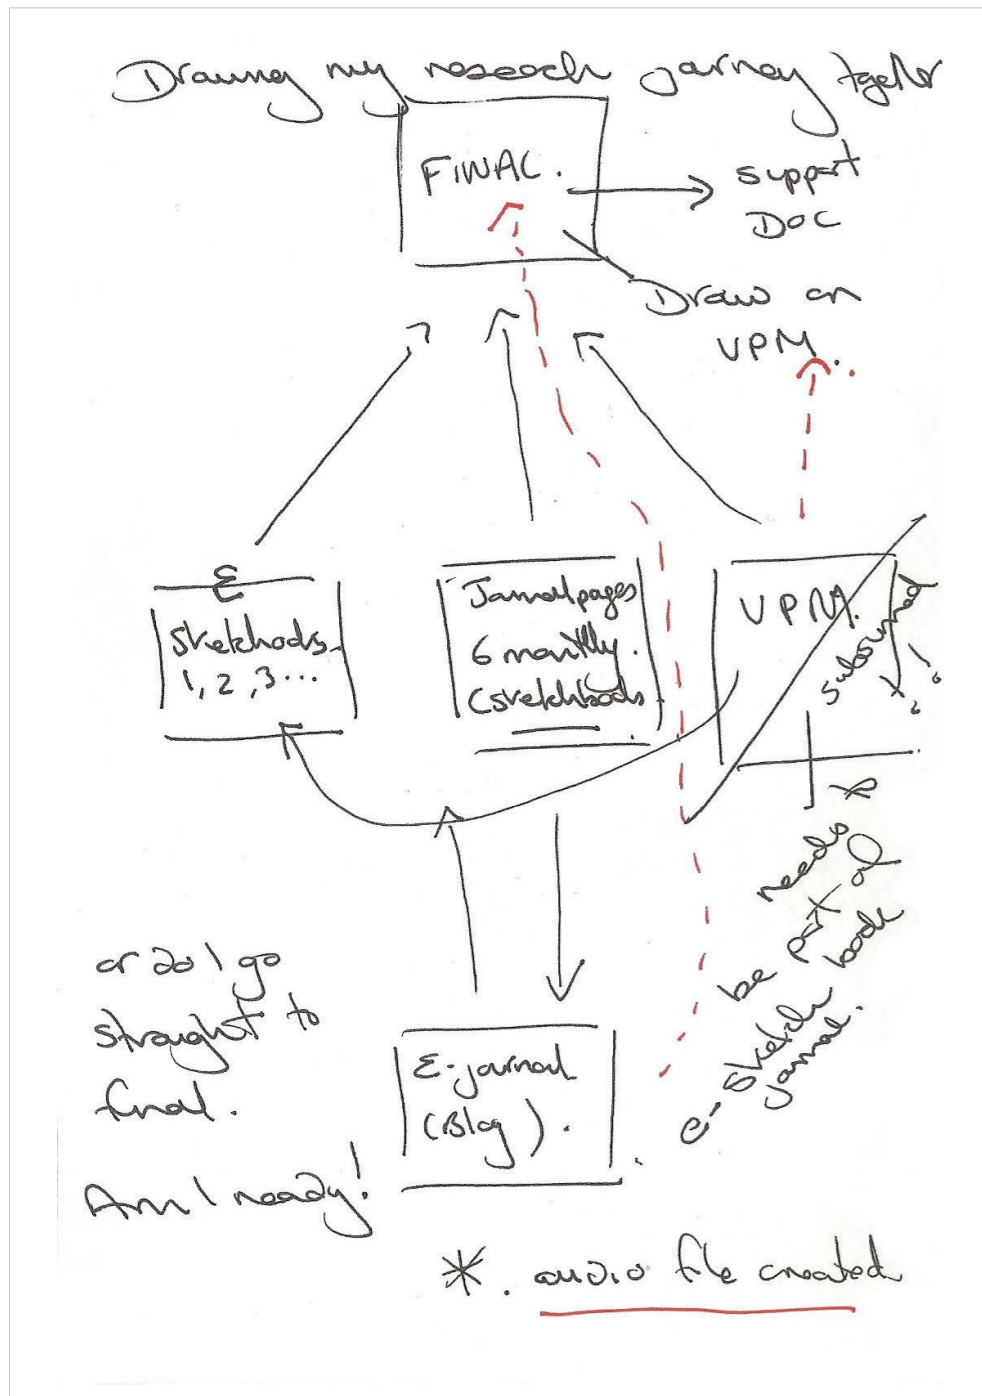 Drawing my research journey together
FINAL.
support
DOC
Draw on
VPM.
E
Sketchbooks.
1, 2, 3...
Journal pages
6 monthly.
(sketchbooks.
VPM.
subsumed
needs to
be part of
e-sketch book
journal.
or do I go
straight to
final.
Am I ready!
E-journal
(Blog).
*. audio file created